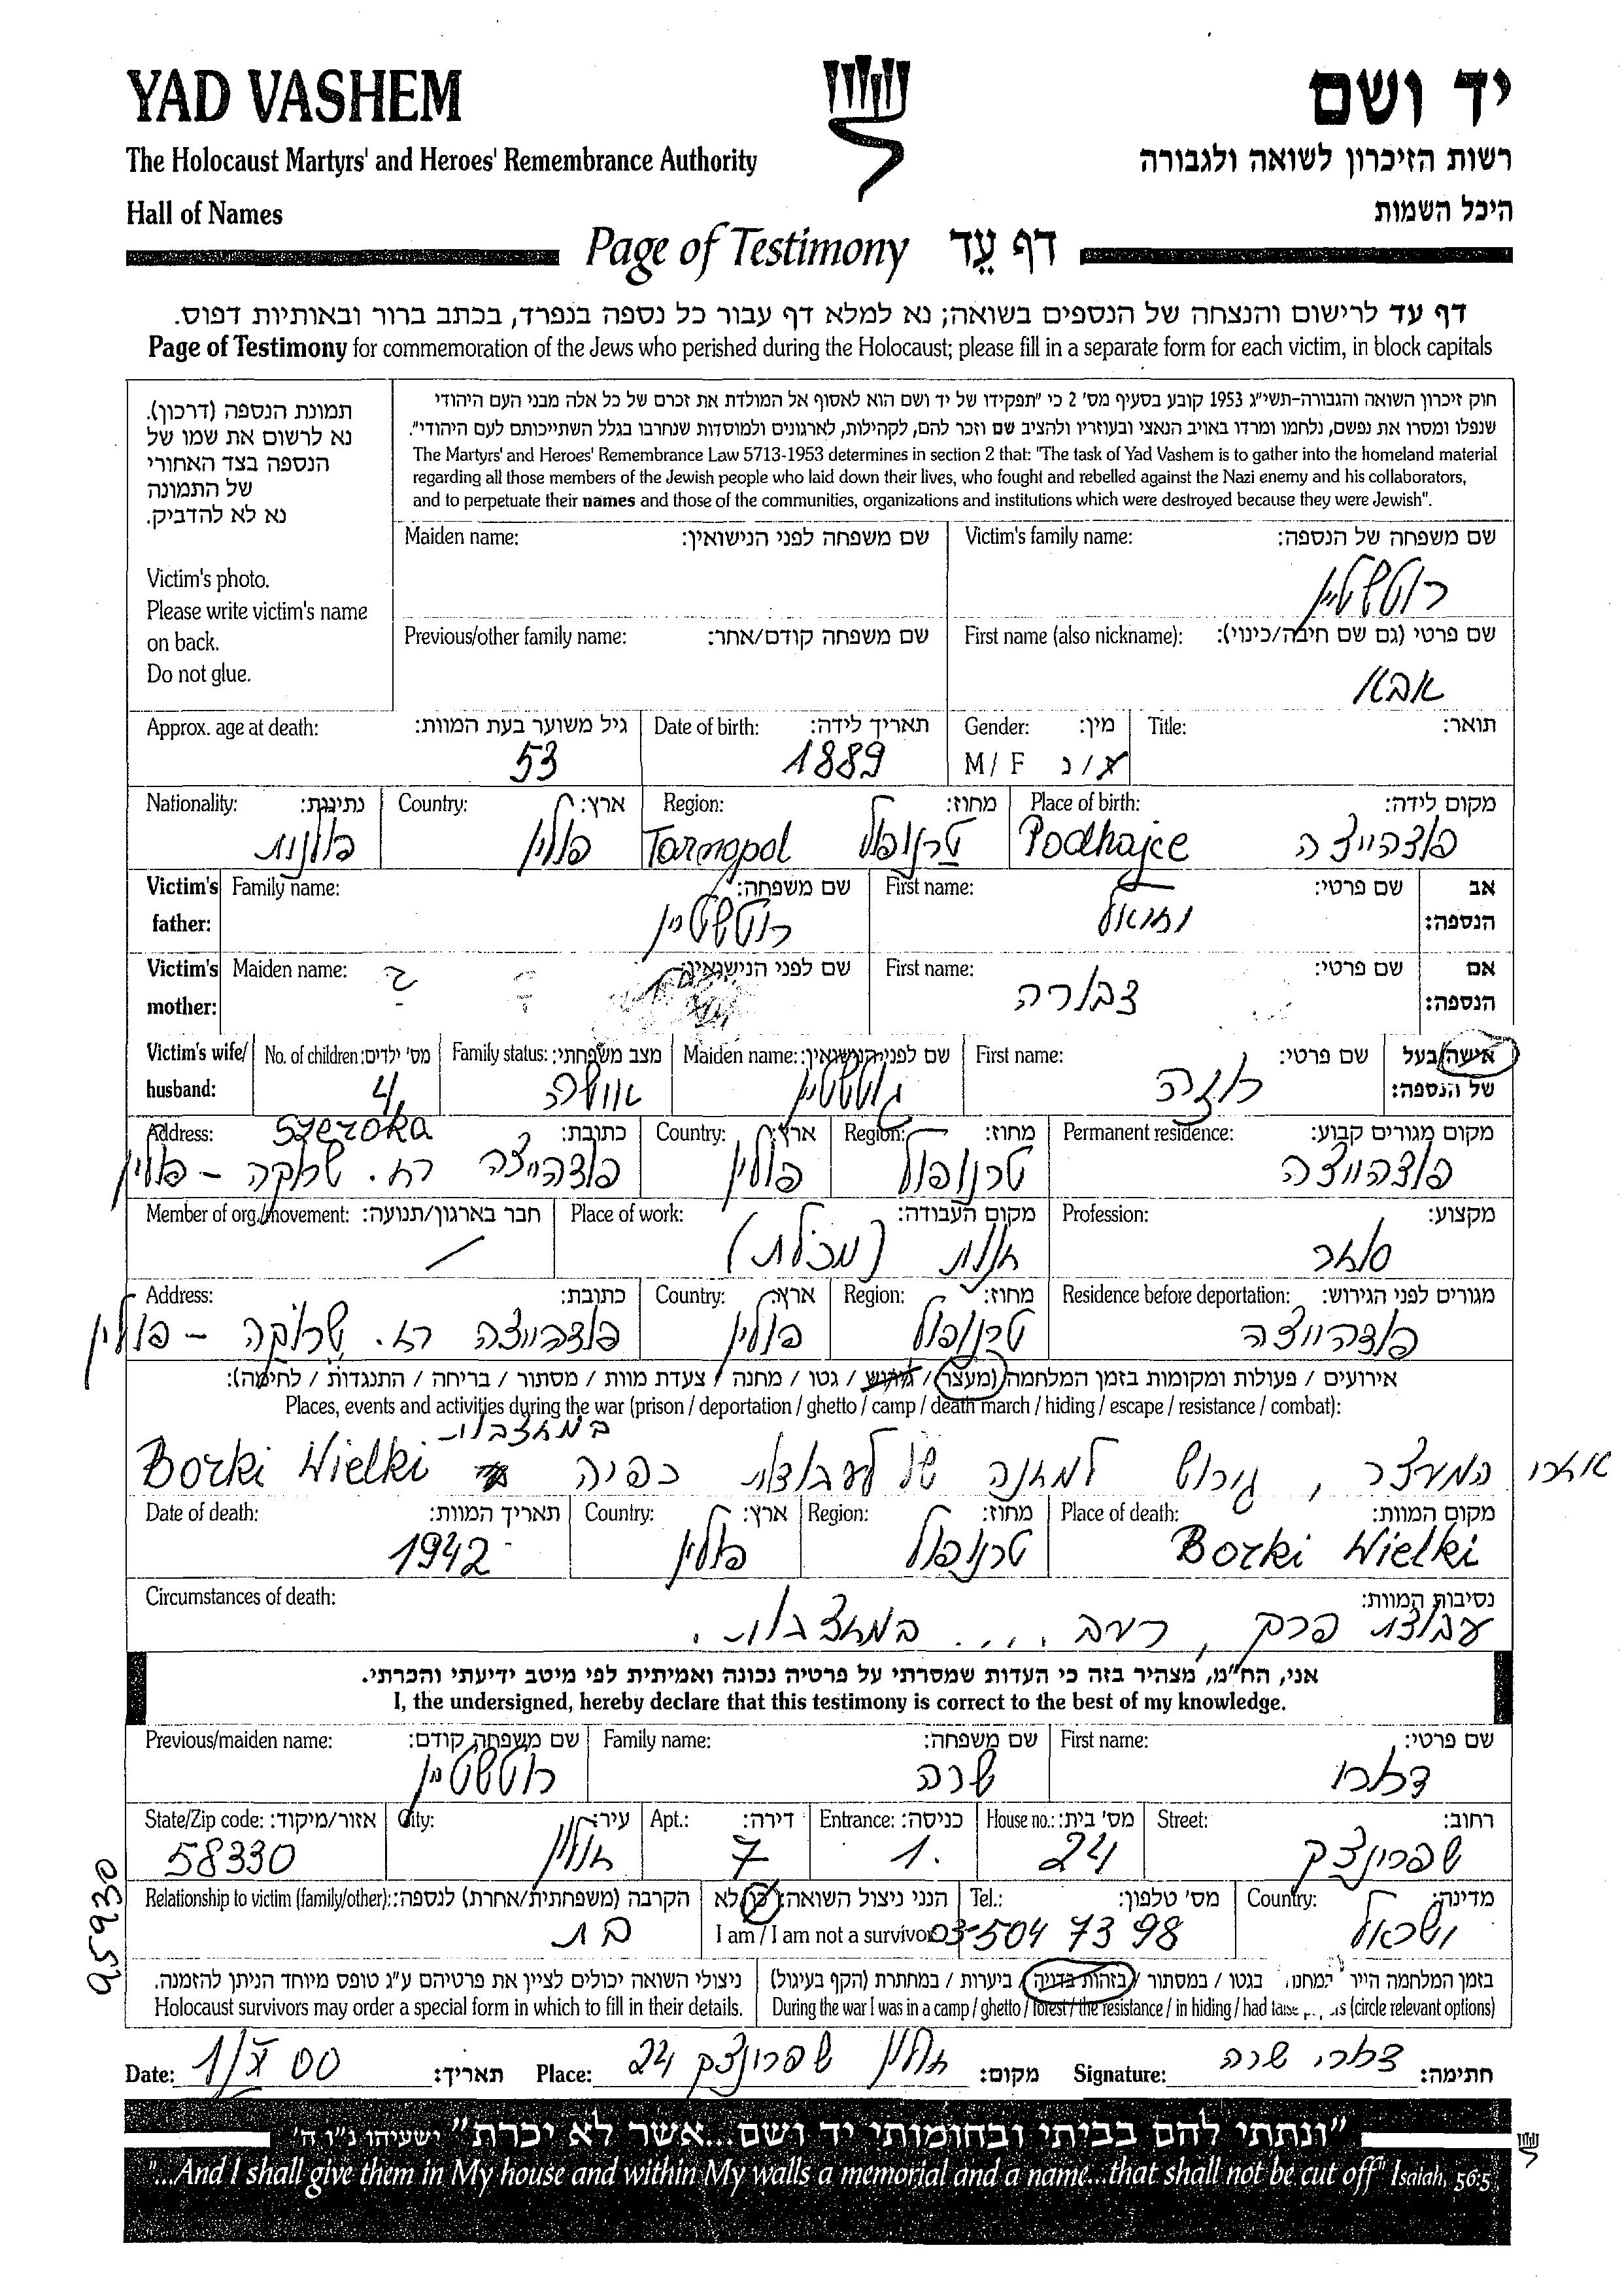 YAD VASHEM
יד ושם
The Holocaust Martyrs' and Heroes' Remembrance Authority
רשות הזיכרון לשואה ולגבורה
Hall of Names
היכל השמות
Page of Testimony דף עֵד
דף עד לרישום והנצחה של הנספים בשואה; נא למלא דף עבור כל נספה בנפרד, בכתב ברור ובאותיות דפוס.
Page of Testimony for commemoration of the Jews who perished during the Holocaust; please fill in a separate form for each victim, in block capitals
תמונת הנספה (דרכון).
נא לרשום את שמו של
הנספה בצד האחורי
של התמונה
נא לא להדביק.
Victim's photo.
Please write victim's name
on back.
Do not glue.
חוק זיכרון השואה והגבורה-תשי"ג 1953 קובע בסעיף מס' 2 כי "תפקידו של יד ושם הוא לאסוף אל המולדת את זכרם של כל אלה מבני העם היהודי
שנפלו ומסרו את נפשם, נלחמו ומרדו באויב הנאצי ובעוזריו ולהציב שם וזכר להם, לקהילות, לארגונים ולמוסדות שנחרבו בגלל השתייכותם לעם היהודי".
The Martyrs' and Heroes' Remembrance Law 5713-1953 determines in section 2 that: "The task of Yad Vashem is to gather into the homeland material
regarding all those members of the Jewish people who laid down their lives, who fought and rebelled against the Nazi enemy and his collaborators,
and to perpetuate their names and those of the communities, organizations and institutions which were destroyed because they were Jewish".
Maiden name: שם משפחה לפני הנישואין:
Victim's family name: שם משפחה של הנספה:
רוטשטיין
Previous/other family name: שם משפחה קודם/אחר:
First name (also nickname): שם פרטי (גם שם חיבה/כינוי):
אבא
Approx. age at death: גיל משוער בעת המוות:
53
Date of birth: תאריך לידה:
1889
Gender: מין:
M / F ז/נ
Title: תואר:
Nationality: נתינות:
פולנית
Country: ארץ:
פולין
Region: מחוז:
Tarnopol טרנופול
Place of birth: מקום לידה:
Podhajce פודהייצה
Victim's father: Family name: שם משפחה:
רוטשטיין
First name: שם פרטי: אב הנספה:
Victim's mother: Maiden name: שם לפני הנישואין:
?
First name: שם פרטי: אם הנספה:
דבורה
Victim's wife/husband: No. of children: מס' ילדים:
4
Family status: מצב משפחתי:
Maiden name: שם לפני הנישואין:
First name: שם פרטי: אישה/בעל של הנספה:
רוזה
Address: כתובת:
Szeroka
פודהייצה רח. שרוקה – פולין
Country: ארץ:
פולין
Region: מחוז:
טרנופול
Permanent residence: מקום מגורים קבוע:
פודהייצה
Member of org./movement: חבר בארגון/תנועה:
Place of work: מקום העבודה:
חנות (מכולת)
Profession: מקצוע:
סוחר
Address: כתובת:
פודהייצה רח. שרוקה – פולין
Country: ארץ:
פולין
Region: מחוז:
טרנופול
Residence before deportation: מגורים לפני הגירוש:
פודהייצה
אירועים / פעולות ומקומות בזמן המלחמה (מעצר / גירוש / גטו / מחנה / צעדת מוות / מסתור / בריחה / התנגדות / לחימה):
Places, events and activities during the war (prison / deportation / ghetto / camp / death march / hiding / escape / resistance / combat):
במחצבות
אחרי המעצר, גירוש למחנה של לעבודות כפיה Borki Wielki
Date of death: תאריך המוות:
1942
Country: ארץ:
פולין
Region: מחוז:
טרנופול
Place of death: מקום המוות:
Borki Wielki
Circumstances of death: נסיבות המוות:
עבודת פרך, רעב .... במחצבות.
אני, הח"מ, מצהיר בזה כי העדות שמסרתי על פרטיה נכונה ואמיתית לפי מיטב ידיעתי והכרתי.
I, the undersigned, hereby declare that this testimony is correct to the best of my knowledge.
Previous/maiden name: שם משפחה קודם:
רוטשטיין
Family name: שם משפחה:
שרה
First name: שם פרטי:
דרורי
State/Zip code: אזור/מיקוד:
58330
City: עיר:
חולון
Apt.: דירה:
7
Entrance: כניסה:
1.
House no.: מס' בית:
24
Street: רחוב:
שפרינצק
95930
Relationship to victim (family/other): הקרבה (משפחתית/אחרת) לנספה:
בת
הנני ניצול השואה: כן/לא
I am / I am not a survivor
Tel.: מס' טלפון:
03-504 73 98
Country: מדינה:
ישראל
ניצולי השואה יכולים לציין את פרטיהם ע"ג טופס מיוחד הניתן להזמנה.
Holocaust survivors may order a special form in which to fill in their details.
בזמן המלחמה הייתי במחנה / בגטו / במסתור / בזהות בדויה / ביערות / במחתרת (הקף בעיגול)
During the war I was in a camp / ghetto / forest / the resistance / in hiding / had false papers (circle relevant options)
Date: 1/X 00 תאריך:
Place: חולון שפרינצק 24 מקום:
Signature: דרורי שרה חתימה:
"ונתתי להם בביתי ובחומותי יד ושם...אשר לא יכרת" ישעיהו נ"ו ה'
"...And I shall give them in My house and within My walls a memorial and a name...that shall not be cut off" Isaiah, 56:5